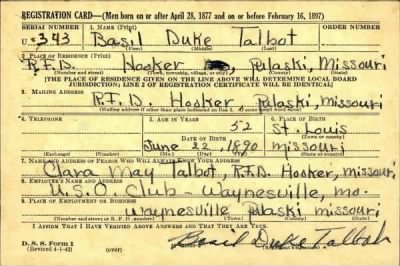 REGISTRATION CARD—(Men born on or after April 28, 1877 and on or before February 16, 1897)
SERIAL NUMBER 1. NAME (Print) ORDER NUMBER
U 343 Basil Duke Talbot
(First) (Middle) (Last)
2. PLACE OF RESIDENCE (Print)
R.F.D. Hooker Pulaski, Missouri
(Number and street) (Town, township, village, or city) (County) (State)
[THE PLACE OF RESIDENCE GIVEN ON THE LINE ABOVE WILL DETERMINE LOCAL BOARD
JURISDICTION; LINE 2 OF REGISTRATION CERTIFICATE WILL BE IDENTICAL]
3. MAILING ADDRESS
R.F.D. Hooker Pulaski, Missouri
[Mailing address if other than place indicated on line 2. If same insert word same]
4. TELEPHONE 5. AGE IN YEARS 6. PLACE OF BIRTH
52 St. Louis
DATE OF BIRTH (Town or county)
June 22, 1890 Missouri
(Mo.) (Day) (Yr.) (State or country)
7. NAME AND ADDRESS OF PERSON WHO WILL ALWAYS KNOW YOUR ADDRESS
Clara May Talbot, R.F.D. Hooker, Missouri
8. EMPLOYER'S NAME AND ADDRESS
U.S.O. Club - Waynesville, Mo.
9. PLACE OF EMPLOYMENT OR BUSINESS
Waynesville Pulaski Missouri
(Number and street or R. F. D. number) (Town) (County) (State)
I AFFIRM THAT I HAVE VERIFIED ABOVE ANSWERS AND THAT THEY ARE TRUE.
D. S. S. Form 1
(Revised 4-1-42) (over) Basil Duke Talbot